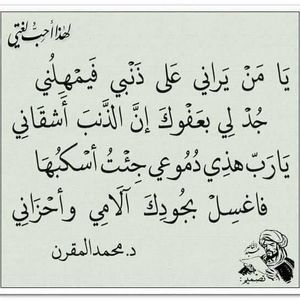 لهذا أحب لغتي
يَا مَنْ يَرَاني عَلى ذَنْبي فَيمْهِلُني
جُدْ لي بعَفْوكَ إنَّ الذَّنبَ أَشقَاني
يَا رَبّ هذِي دُمُوعي جِئْتُ أسْكبُهَا
فاغسِلْ بجُودِكَ آلَامِي وأحْزَاني
د. محمد المقرن
تصميم: